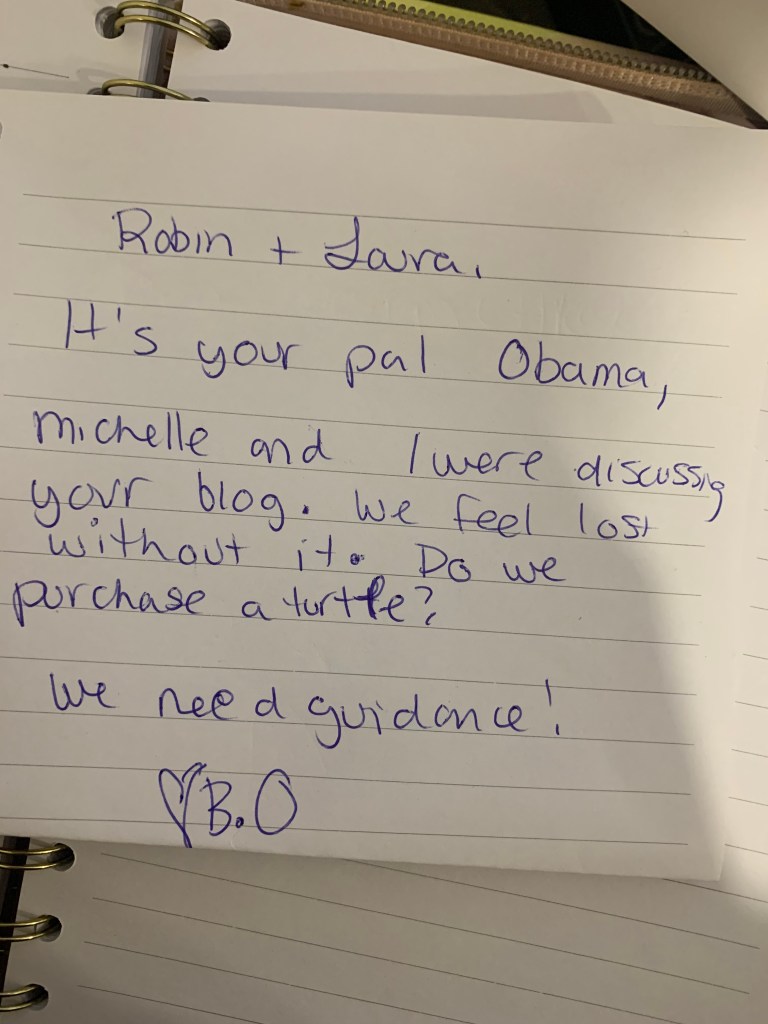 Robin + Lara,
It's your pal Obama,
Michelle and I were discussing
your blog. We feel lost
without it. Do we
purchase a turtle?
We need guidance!
♡B.O